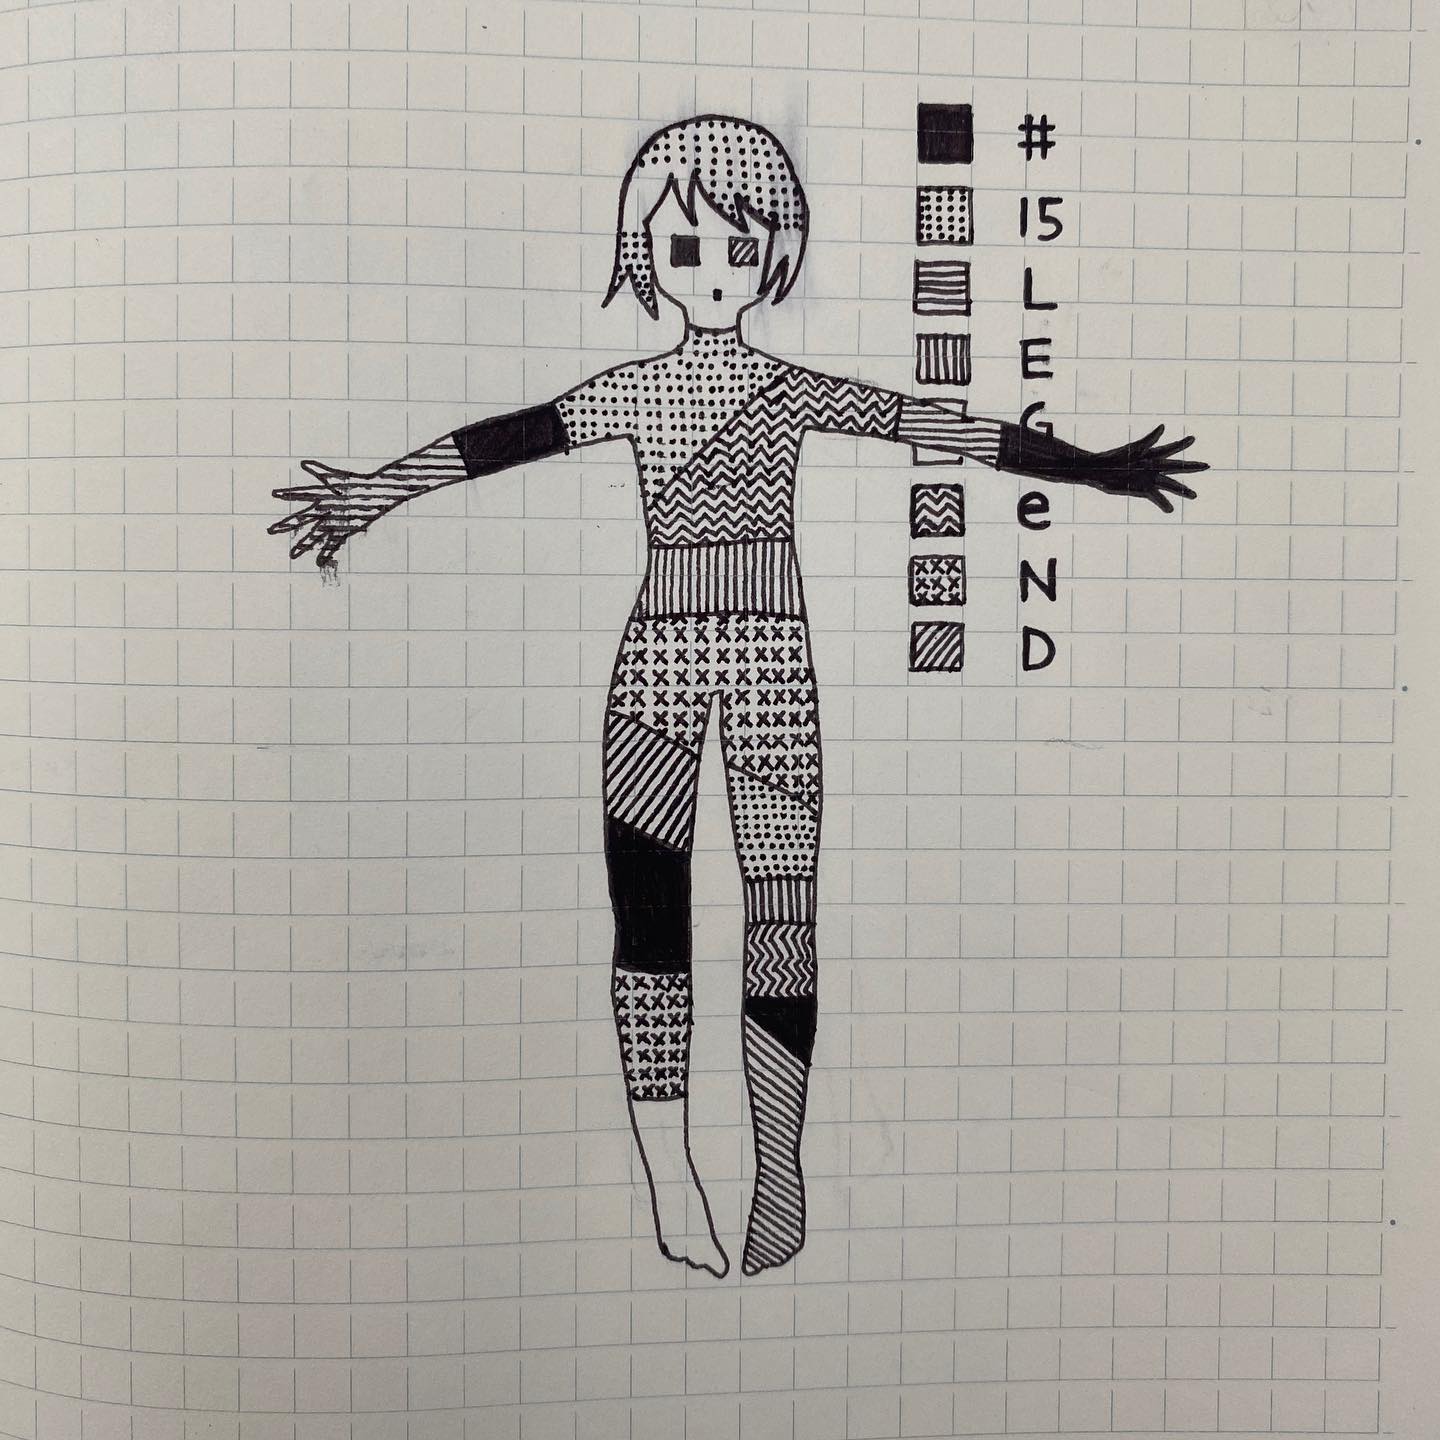 #
15
L
E
G
e
N
D